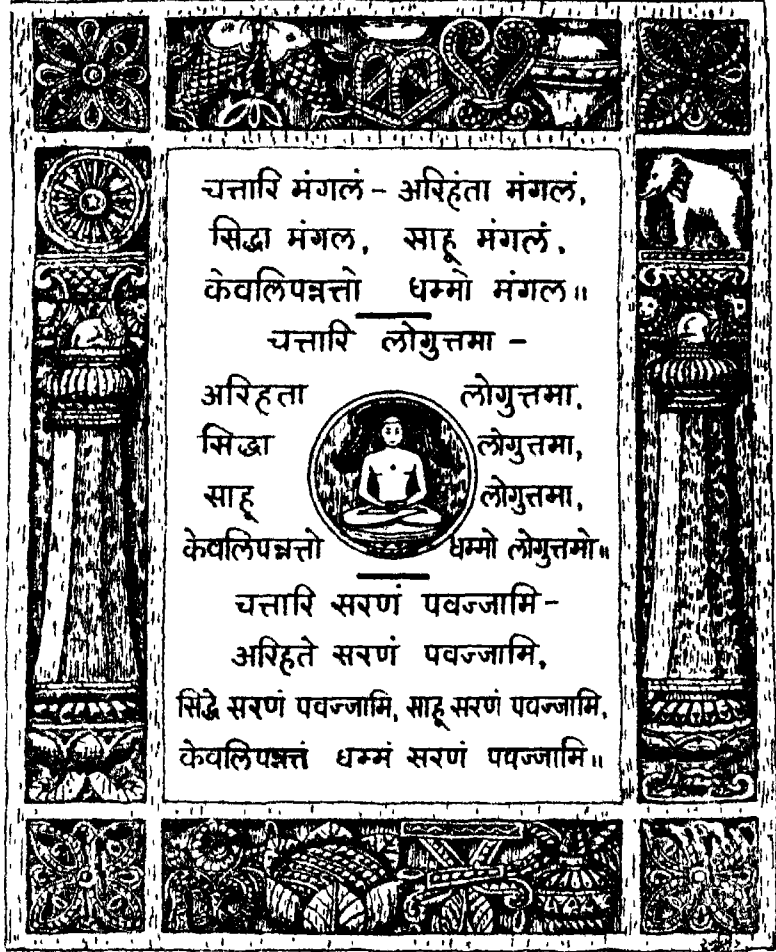 चत्तारि मंगलं - अरिहंता मंगलं,
सिद्धा मंगल, साहू मंगलं,
केवलिपन्नत्तो धम्मो मंगल॥
चत्तारि लोगुत्तमा -
अरिहता लोगुत्तमा,
सिद्धा लोगुत्तमा,
साहू लोगुत्तमा,
केवलिपन्नत्तो धम्मो लोगुत्तमो॥
चत्तारि सरणं पवज्जामि-
अरिहते सरणं पवज्जामि,
सिद्धे सरणं पवज्जामि, साहू सरणं पवज्जामि,
केवलिपन्नत्तं धम्मं सरणं पवज्जामि॥